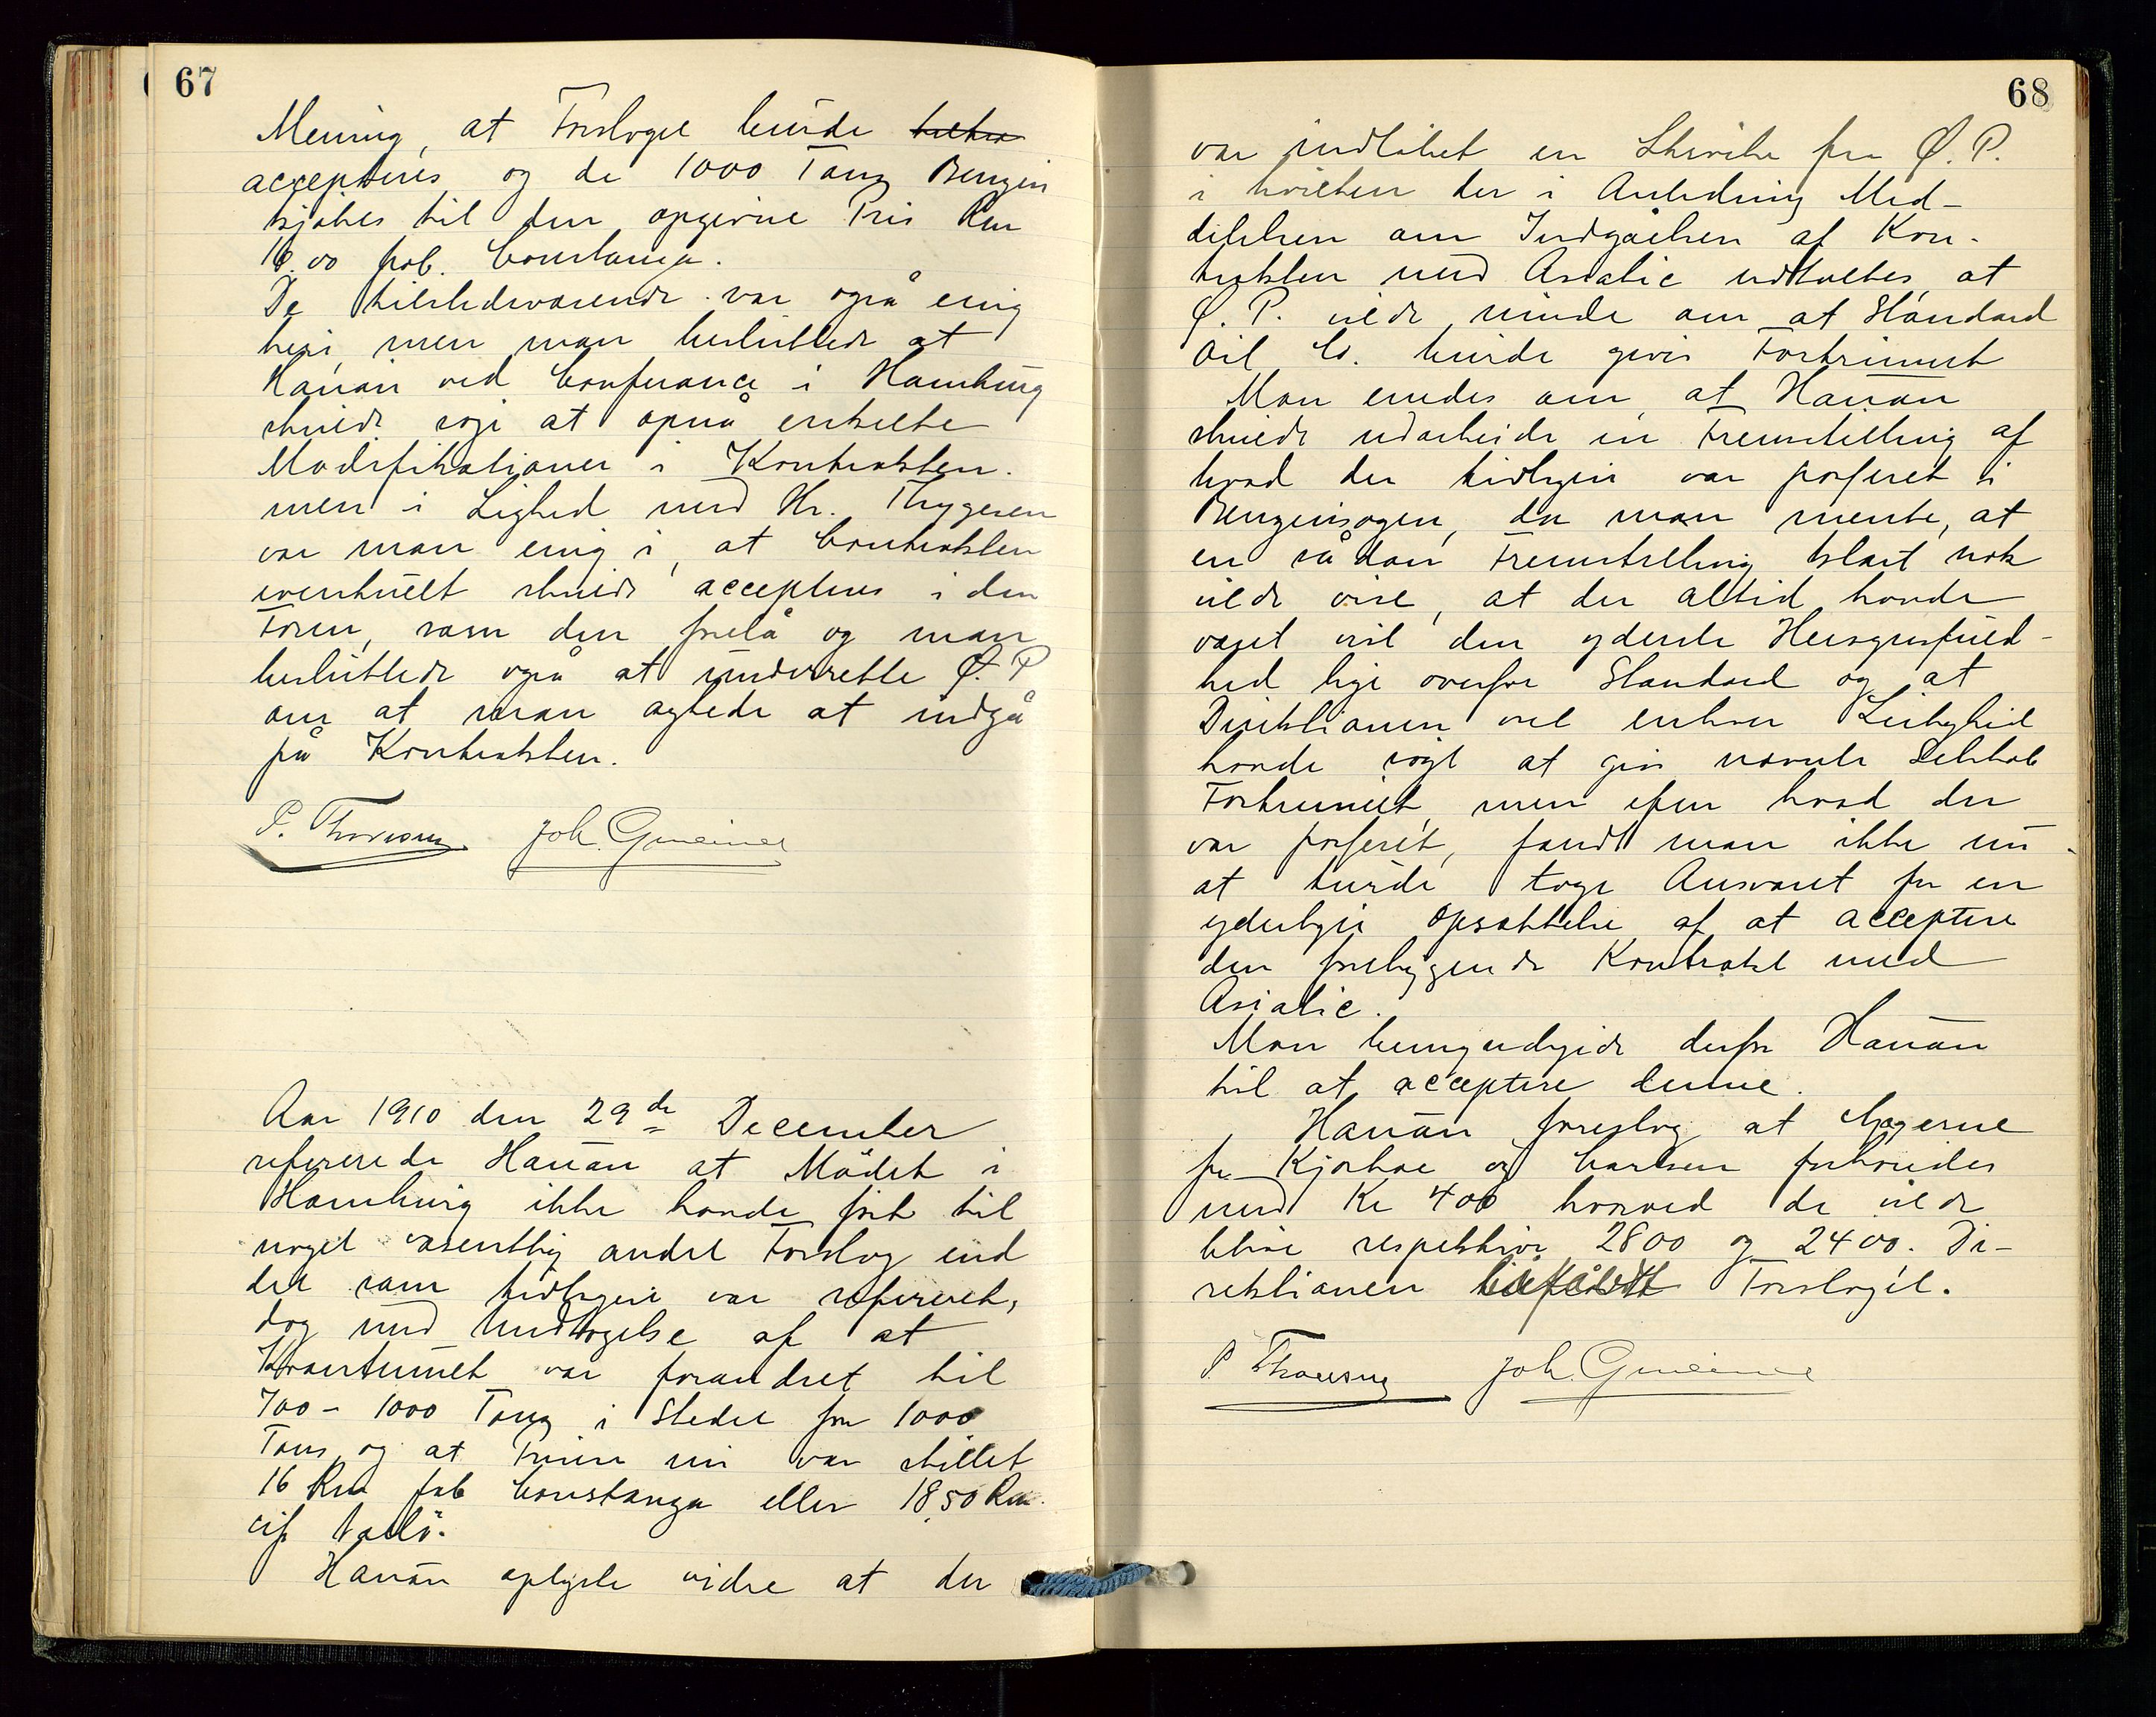 67
Mening, at Forslaget burde
accepteres og de 1000 Tons Benzin
kjøbes til den opgivne Pris Rm
16.00 fob. Constanza.
De tilstedeværende var også enig
heri, men man besluttede at
Hauan ved Conferance i Hamburg
skulde søge at opnå enkelte
Modifikationer i Kontrakten.
men i Lighed med Hr. Thygesen
var man enig i, at Contrakten
eventuelt skulde accepteres i den
Form, som den forelå og man
besluttede også at underrette Ø. P
om at man agtede at indgå
på Kontrakten.
Joh. Grueiner
Aar 1910 den 29de December
refererede Hauan at Mødet i
Hamburg ikke havde ført til
noget væsentlig andet Forslag end
det som tidligere var refereret,
dog med Undtagelse af at
Kvantumet var forandret til
700 - 1000 Tons i Stedet for 1000
Tons og at Prisen nu var stillet
16 Rm fob Constanza eller 18,50 Rm.
cif Vallö.
Hauan oplyste vidre at der
68
var indløbet en Skrivelse fra Ø. P.
i hvilken der i Anledning Med-
delelsen om Indgåelsen af Kon-
trakten med Asiatic udtaltes at
Ø. P. vilde minde om at Standard
Oil Co. burde gives Fortrinnet
Man enedes om at Hauan
skulde udarbeide en Fremstilling af
hvad der tidligere var passeret i
Benzinsagen, da man mente, at
en sådan Fremstilling klart nok
vilde vise, at der altid havde
været vist den yderste Hensynsfuld-
hed lige overfor Standard og at
Direktionen ved enhver Leilighed
havde søgt at give nævnte Selskab
Fortrinnet, men efter hvad der
var passeret, fandt man ikke nu
at turde tage Ansvaret for en
yderligere Opsættelse af at acceptere
den foreliggende Kontrakt med
Asiatic.
Man bemyndigede derfor Hauan
til at acceptere denne.
Hauan foreslog at Gagerne
for Kjorboe og Carlsen forhøiedes
med Kr 400 hvorved de vilde
blive respektive 2800 og 2400. Di-
rektionen Forslaget.
Joh. Grueiner